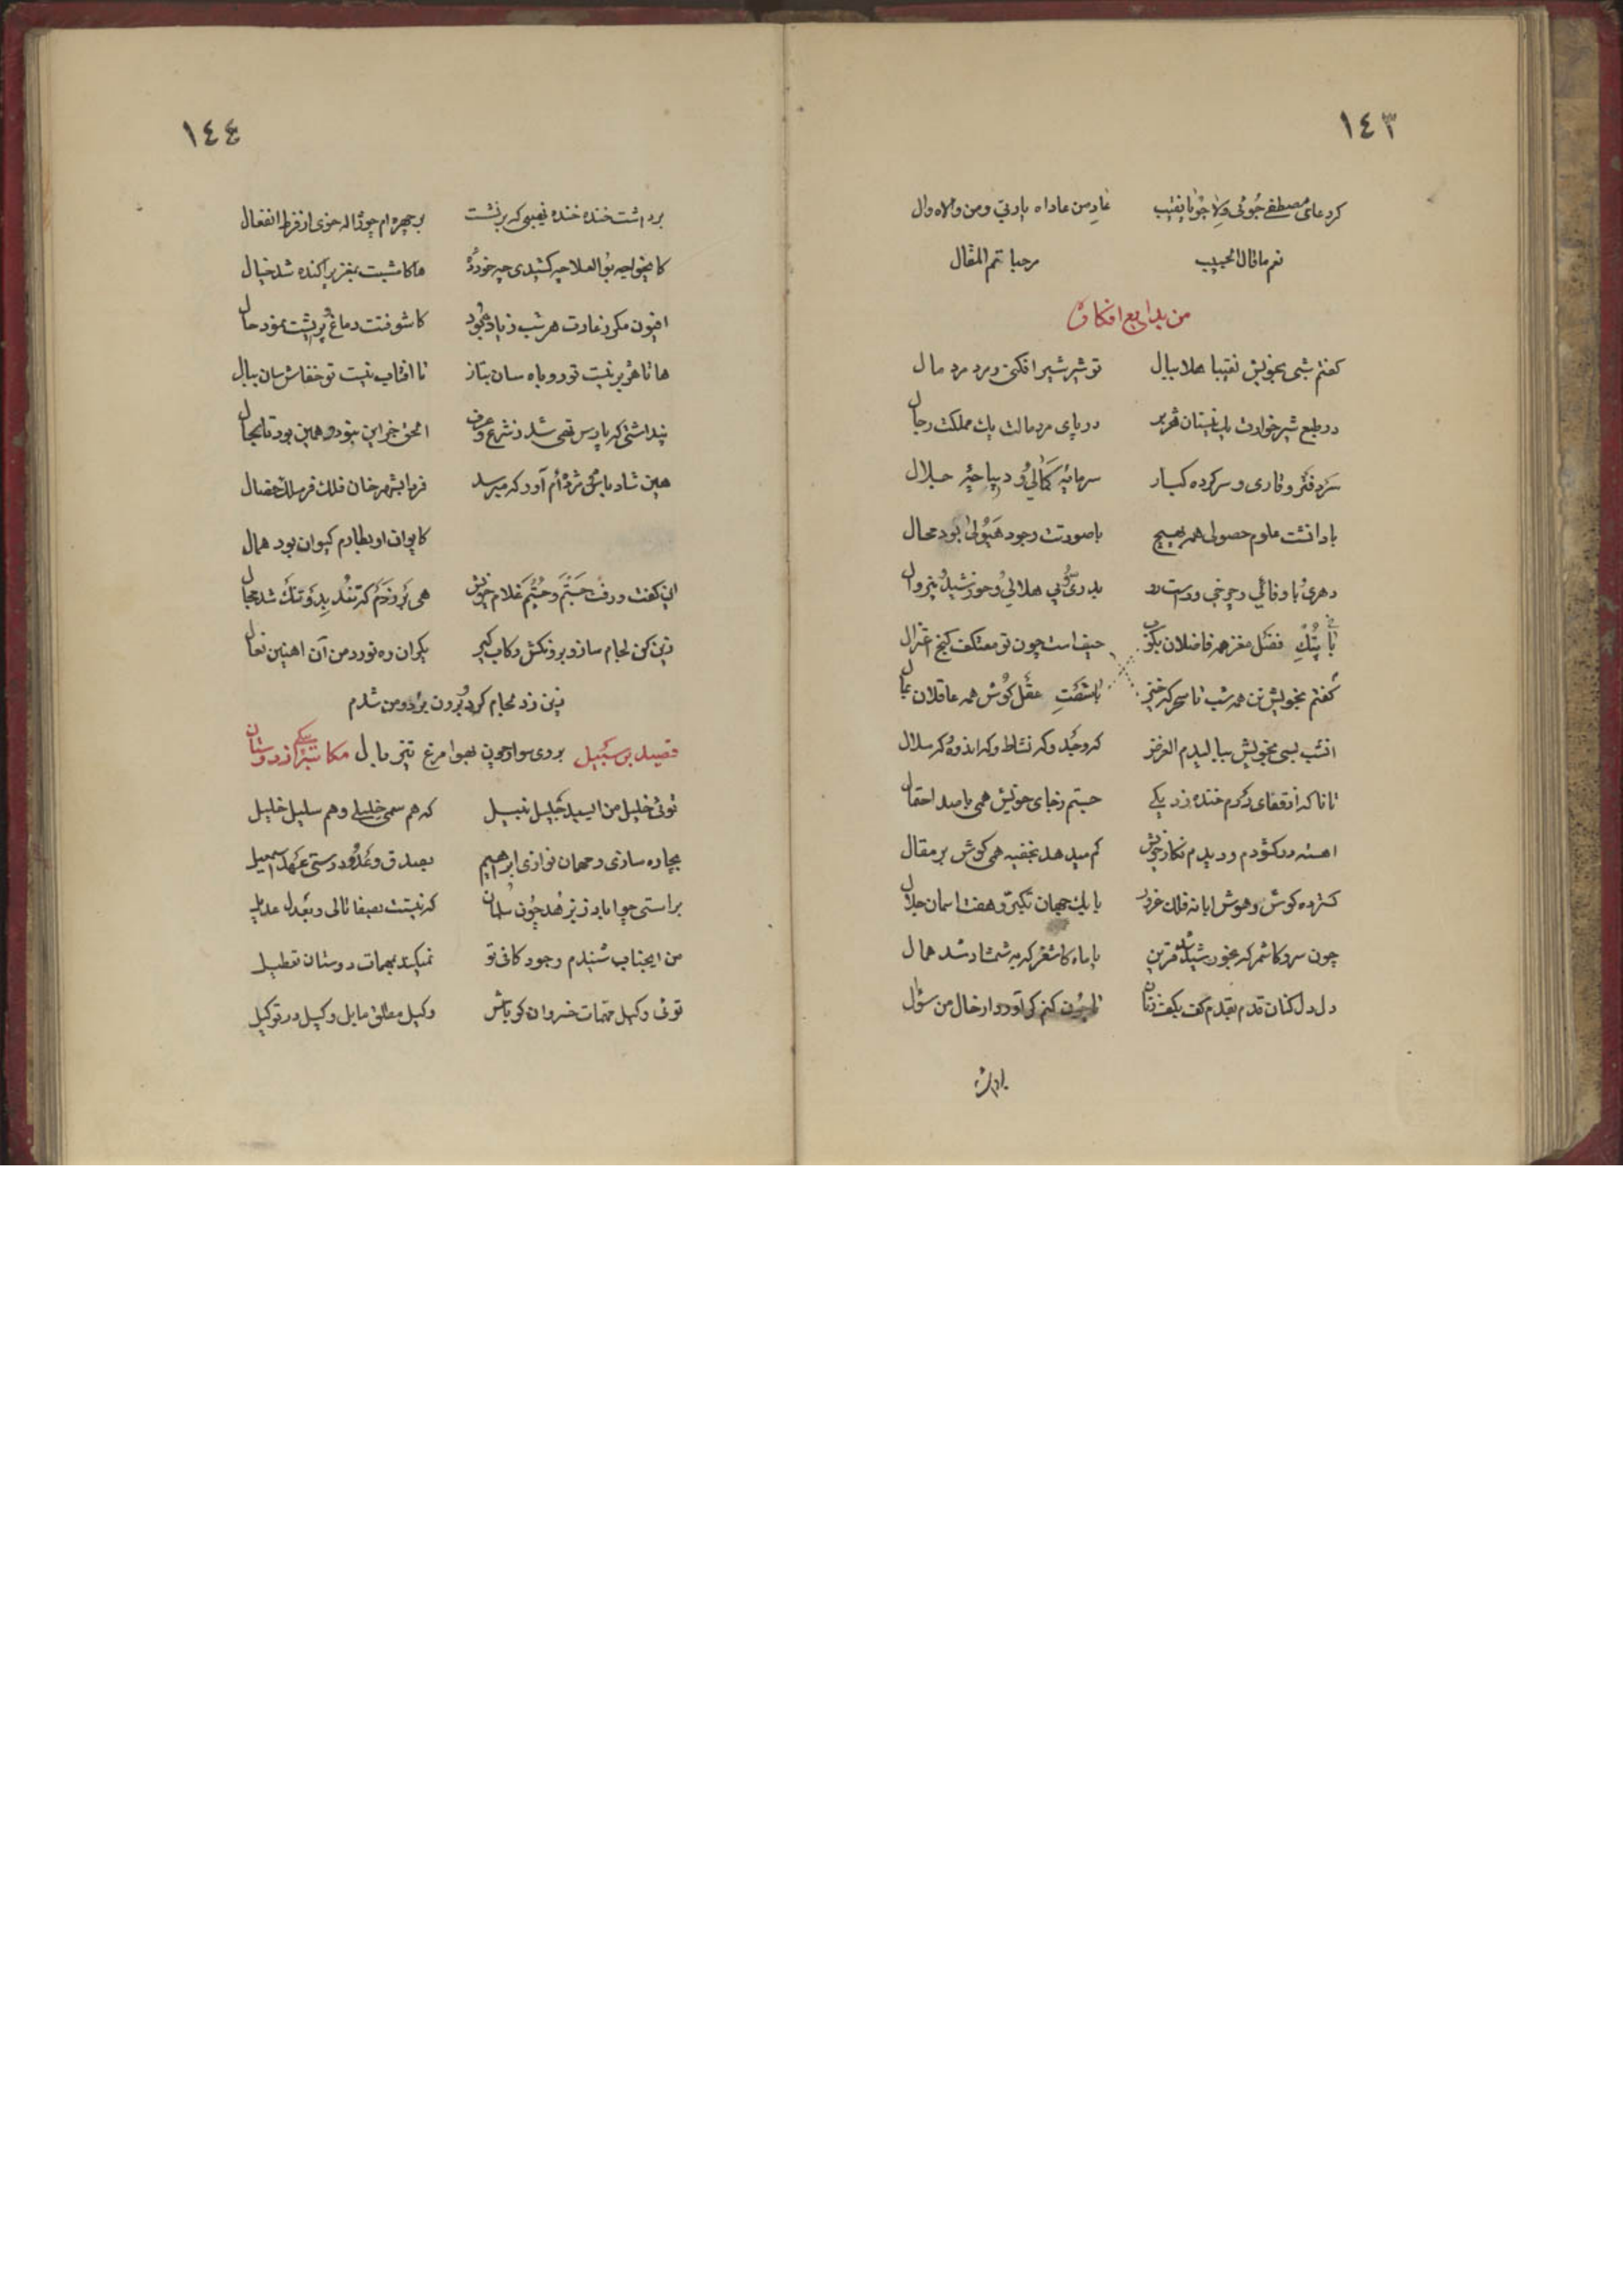 ١٤٣
کرد عای مصطفی جوئی ولا جویا نقیب عاد من عاداه یا ربی و من والاه وال
نعم ما قال الحبیب مرحبا تم المقال
من بدایع افکاره
کفتم شبی بخویش نقیبا هلا ببال تو شیر شیر افکنی و مرد مرد مال
در طبع شیر خوارت یک نیستان هژبر در پای مرد مالت یک مملکت رجال
سردفتر وقاری و سرکرده کبار سرمایه کمالی و دیباچه جلال
با دانشت علوم حصولی همه بسیج با صورتت وجود هیولی بود محال
دهری با وفائی و چرخی و راست رو بدری و بی هلالی و خورشید و بیزوال
با پتک فضل مغز همه فاضلان بکوب حیف است چون تو معتکف کنج اعتزال
کفتم بخویش تن همه شب تا سحر که خیز با شفت عقل کوش همه عاقلان بمال
انشب بسی بخویش ببالیدم العزیز که وجد و که نشاط و که اندوه که ملال
تا ناکه از قفای درم خنده زد یکی جستم ز جای خویش همی با صد احتفال
اهسته در کشودم و دیدم نکار خویش کم میدهد بخفیه همی کوش بر مقال
کسترده کوش و هوش ابا نه فلک غرور با یک جهان تکبر و هفت اسمان جلال
چون سرو کاشمر که بخورشید شد قرین یا ماه کاشغر که به شمشاد شد همال
دل دل کنان قدم بقدم کف بکف زنان تا چون کنم که آورد ارحال من سؤال
برداشت
١٤٤
برداشت خنده خنده نهیبی که برنشست بر چهره ام چو ژاله خوی از فرط انفعال
کایخواجه بو العلا چه کشیدی چه خورده هاکامشبت بمغز پراکنده شد خیال
افیون مکر ز عادت هر شب زیاد بود کاشوفتت دماغ و پریشت نمود حال
هانا هژبر نیست تو روباه سان بتاز تا افتاب نیست تو خفاش سان ببال
پنداشتی که پارس تهی شد ز شرع و عرف الحق جز این نبود و همین بود تا بحال
هین شاد باش مژده ام آور که میرسد فرمانبر مهر خان فلک فر ملک خصال
کایوان او بطارم کیوان بود همال
این کفت و رفت جستم و جستم غلام خویش هی بر زدم که تند بدو تنک شد مجال
زین کن لجام ساز و برون کش رکاب کیر یکران ره نورد من آن اهنین نعال
زین زد لجام کرد برون برد و من شدم
بر وی سوار چون بهوا مرغ تیز بال
مکاتبه از دوستان قصیدة بر سبیل
توئی خلیل من ای سید جلیل نبیل که هم سمی خلیلی و هم سلیل خلیل
بچاره سازی و مهمان نوازی ابرهیم بصدق وعد و درستی عهد اسمعیل
براستی چو ابا ذر بزهد چون سلمان که نیستت بصفا تالی و بعدل عدیل
من ایجناب شنیدم وجود کافی تو نمیکند بمهمات دوستان تعطیل
توئی وکیل مهمات خسروان کو باش وکیل مطلق ما بل وکیل در توکیل